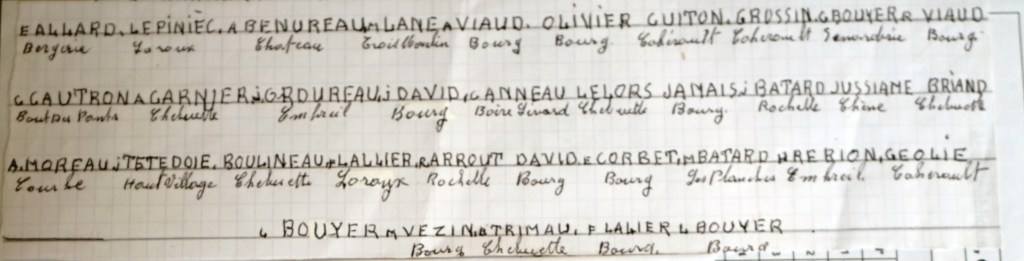 E ALLARD. LEPINIÈC. A BENUREAU. M LANE A VIAUD. OLIVIER GUITON. GROSSIN. G BOUYER R VIAUD
Bergerie Laroux Chateau Bourg Bourg Cahérault Cahérault Bourg
G GAUTRON A GARNIER. J. GROUREAU. J DAVID. GANNEAU LELORS JAMAIS. J BATARD JUSSIAME BRIAND
Bout Du Ponts Chehuette Embreil Bourg Boire Girard Chehuette Bourg. Rochelle Chehuette
A. MOREAU. J TETEDOIE. BOULINEAU. F LALLIER. R ARROUT DAVID. E CORBET. M BATARD H REBION. GEOLIE
Haut Village Chehuette Laroux Rochelle Bourg Bourg Les Planches Embreil Cahérault
G BOUYER M VEZIN. A TRIMAU. F LALIER G BOUYER
Bourg Chehuette Bourg. Bourg